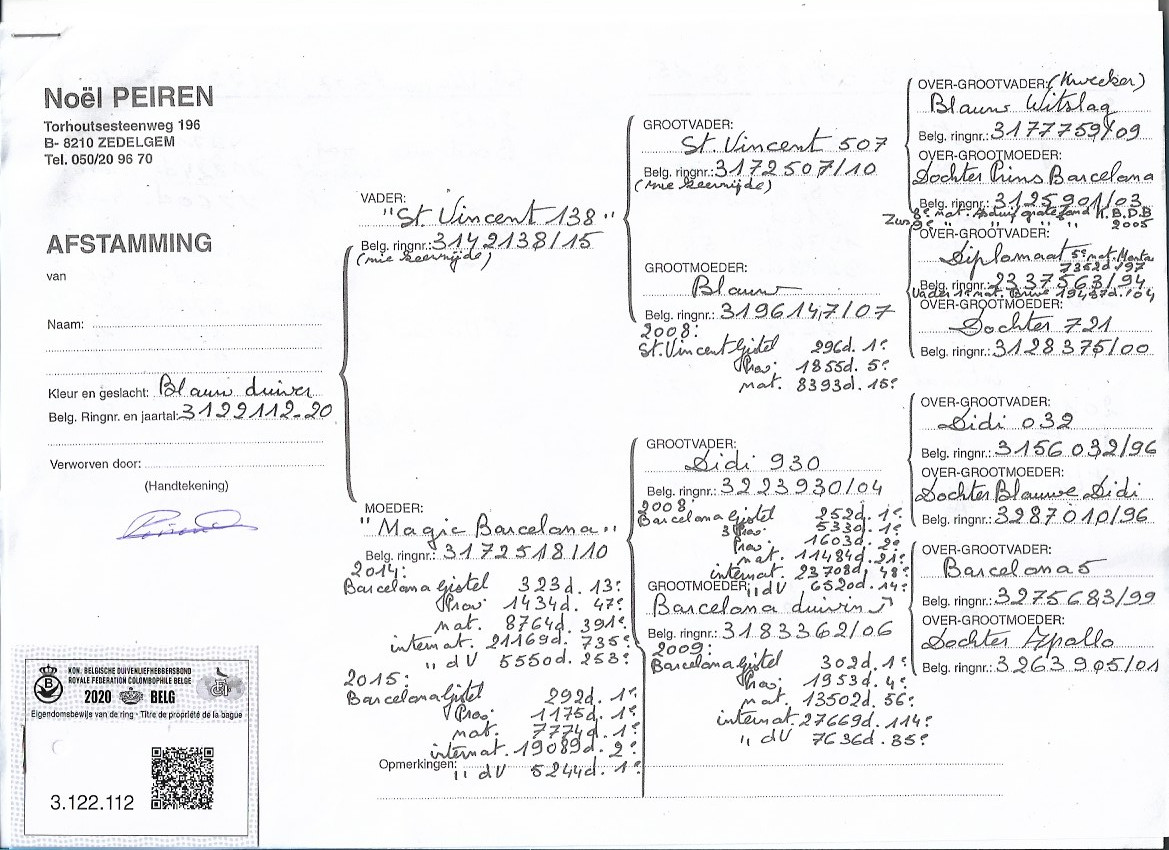 Noël PEIREN
Torhoutsesteenweg 196
B- 8210 ZEDELGEM
Tel. 050/20 96 70
AFSTAMMING
van
Naam:
Kleur en geslacht: Blauw duiver
Belg. Ringnr. en jaartal: 3122112-20
Verworven door:
(Handtekening)
KON. BELGISCHE DUIVENLIEFHEBBERSBOND
ROYALE FEDERATION COLOMBOPHILE BELGE
2020 BELG
Eigendomsbewijs van de ring - Titre de propriété de la bague
3.122.112
VADER:
"St. Vincent 138"
Belg. ringnr.: 3142138/15
(nie keernijde)
MOEDER:
"Magic Barcelona"
Belg. ringnr.: 3172518/10
2014:
Barcelona Gistel 323d. 13e
Prov. 1434d. 47e
nat. 8764d. 391e
internat. 21169d. 735e
" dV 5550d. 253e
2015:
Barcelona Gistel 292d. 1e
Prov. 1175d. 1e
nat. 7774d. 1e
internat. 19089d. 2e
Opmerkingen: " dV 5244d. 1e
GROOTVADER:
St. Vincent 507
Belg. ringnr.: 3172507/10
(nie keernijde)
GROOTMOEDER:
Blauw
Belg. ringnr.: 3196147/07
2008:
St. Vincent Gistel 296d. 1e
Prov. 1855d. 5e
nat. 8393d. 15e
GROOTVADER:
Didi 930
Belg. ringnr.: 3223930/04
2008:
Barcelona Gistel 252d. 1e
3 Prov. 533d. 1e
Prov. 1603d. 2e
nat. 11484d. 21e
internat. 23708d. 48e
" dV 6520d. 14e
GROOTMOEDER:
Barcelona duivin
Belg. ringnr.: 3183362/06
2009:
Barcelona Gistel 302d. 1e
Prov. 1953d. 4e
nat. 13502d. 56e
internat. 27669d. 114e
" dV 7636d. 85e
OVER-GROOTVADER: (Kweeker)
Blauw Witslag
Belg. ringnr.: 3177759/09
OVER-GROOTMOEDER:
Dochter Prins Barcelona
Belg. ringnr.: 3125901/03
Zus 8e nat. grote fond K.B.D.B
9e " " " " 2005
OVER-GROOTVADER:
Diplomaat 5e nat.
7352d/97
Belg. ringnr.: 2337563/94
Vader 1e nat. Brive 19437d./04
OVER-GROOTMOEDER:
Dochter 721
Belg. ringnr.: 3128375/00
OVER-GROOTVADER:
Didi 032
Belg. ringnr.: 3156032/96
OVER-GROOTMOEDER:
Dochter Blauwe Didi
Belg. ringnr.: 3287010/96
OVER-GROOTVADER:
Barcelona 5
Belg. ringnr.: 3275683/99
OVER-GROOTMOEDER:
Dochter Apollo
Belg. ringnr.: 3263905/01